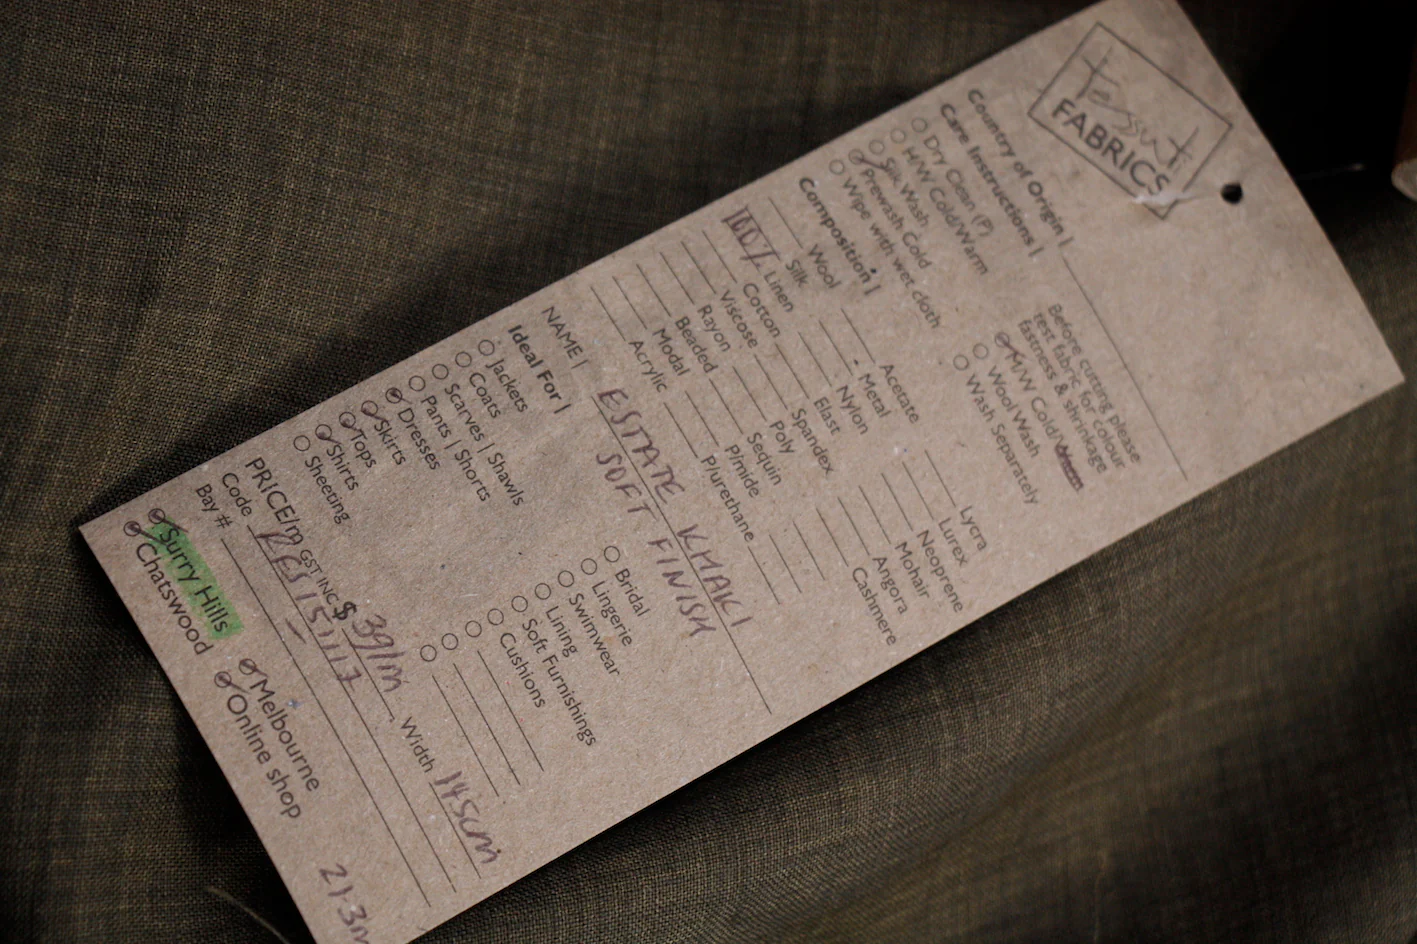 Tessuti
FABRICS
Country of Origin |
Care Instructions |
Dry Clean (P)
H/W Cold/Warm
Silk Wash
Prewash Cold
Wipe with wet cloth
Before cutting please
test fabric for colour
fastness & shrinkage
M/W Cold/
Wool Wash
Wash Separately
Composition |
Wool
Silk
100% Linen
Cotton
Viscose
Rayon
Beaded
Modal
Acrylic
Acetate
Metal
Nylon
Elast
Spandex
Poly
Sequin
P/mide
P/urethane
Lycra
Lurex
Neoprene
Mohair
Angora
Cashmere
NAME | ESTATE KHAKI
SOFT FINISH
Ideal For |
Jackets
Coats
Scarves | Shawls
Pants | Shorts
Dresses
Skirts
Tops
Shirts
Sheeting
Bridal
Lingerie
Swimwear
Lining
Soft Furnishings
Cushions
PRICE/m GST INC $ 39/m Width 145cm
Code
Bay #
Surry Hills
Chatswood
Melbourne
Online shop